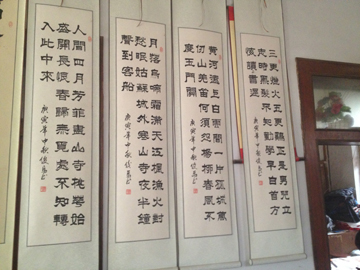 三更燈火五更雞正是男兒立
志時黑髮不知勤學早白首方
悔讀書遲
庚寅年中秋
黃河遠上白雲間一片孤城萬
仞山羌笛何須怨楊柳春風不
度玉門關
庚寅年中秋
月落烏啼霜滿天江楓漁火對
愁眠姑蘇城外寒山寺夜半鐘
聲到客船
庚寅年中秋
人間四月芳菲盡山寺桃花始
盛開長恨春歸無覓處不知轉
入此中來
庚寅年中秋